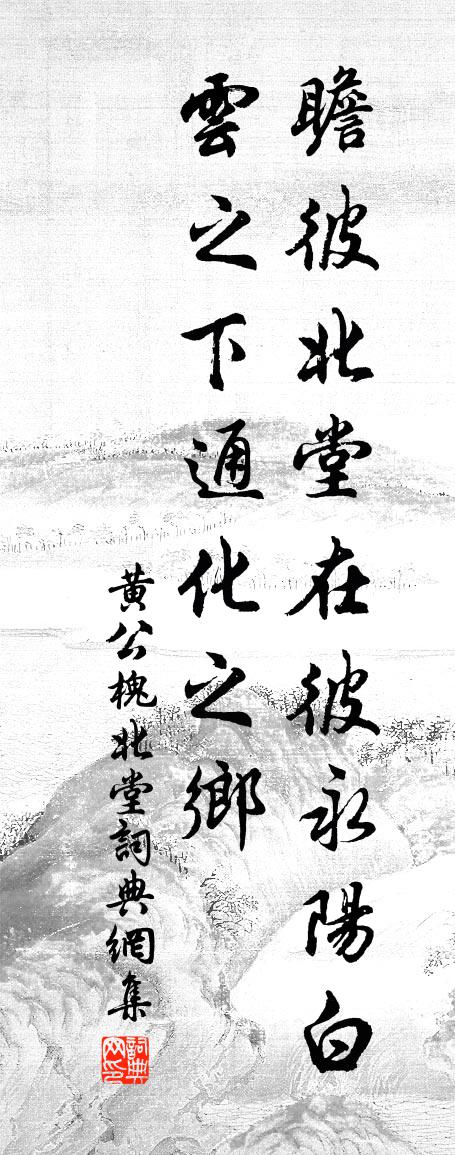 瞻彼北堂在彼永陽白
雲之下通化之鄉
黃公槐北堂詞典網集
詞典网印